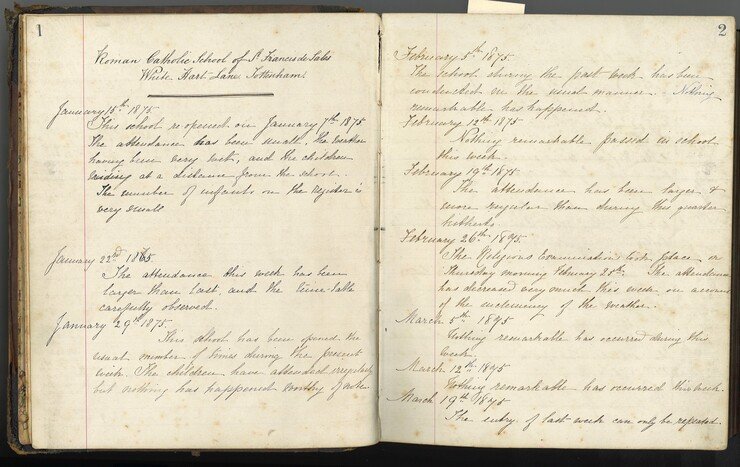 1
Roman Catholic School of St Francis de Sales
White Hart Lane Tottenham
January 15th 1875
This school re-opened on January 7th 1875
The attendance has been small, the weather
having been very wet, and the children
residing at a distance from the school.
The number of infants on the Register is
very small
January 22nd 1865
The attendance this week has been
larger than last and the time-table
carefully observed.
January 29th 1875.
This school has been opened the
usual number of times during the present
week. The children have attended irregularly
but nothing has happened worthy of note.
2
February 5th 1875.
The school during the past week has been
conducted in the usual manner - Nothing
remarkable has happened.
February 12th 1875
Nothing remarkable passed in school
this week.
February 19th 1875
The attendance has been larger &
more regular than during this quarter
hitherto.
February 26th 1875.
The Religious Examination took place on
Thursday morning February 25th. The attendance
has decreased very much this week on account
of the inclemency of the weather.
March 5th 1875
Nothing remarkable has occurred during this
week.
March 12th 1875
Nothing remarkable has occurred this week
March 19th 1875
The entry of last week can only be repeated.